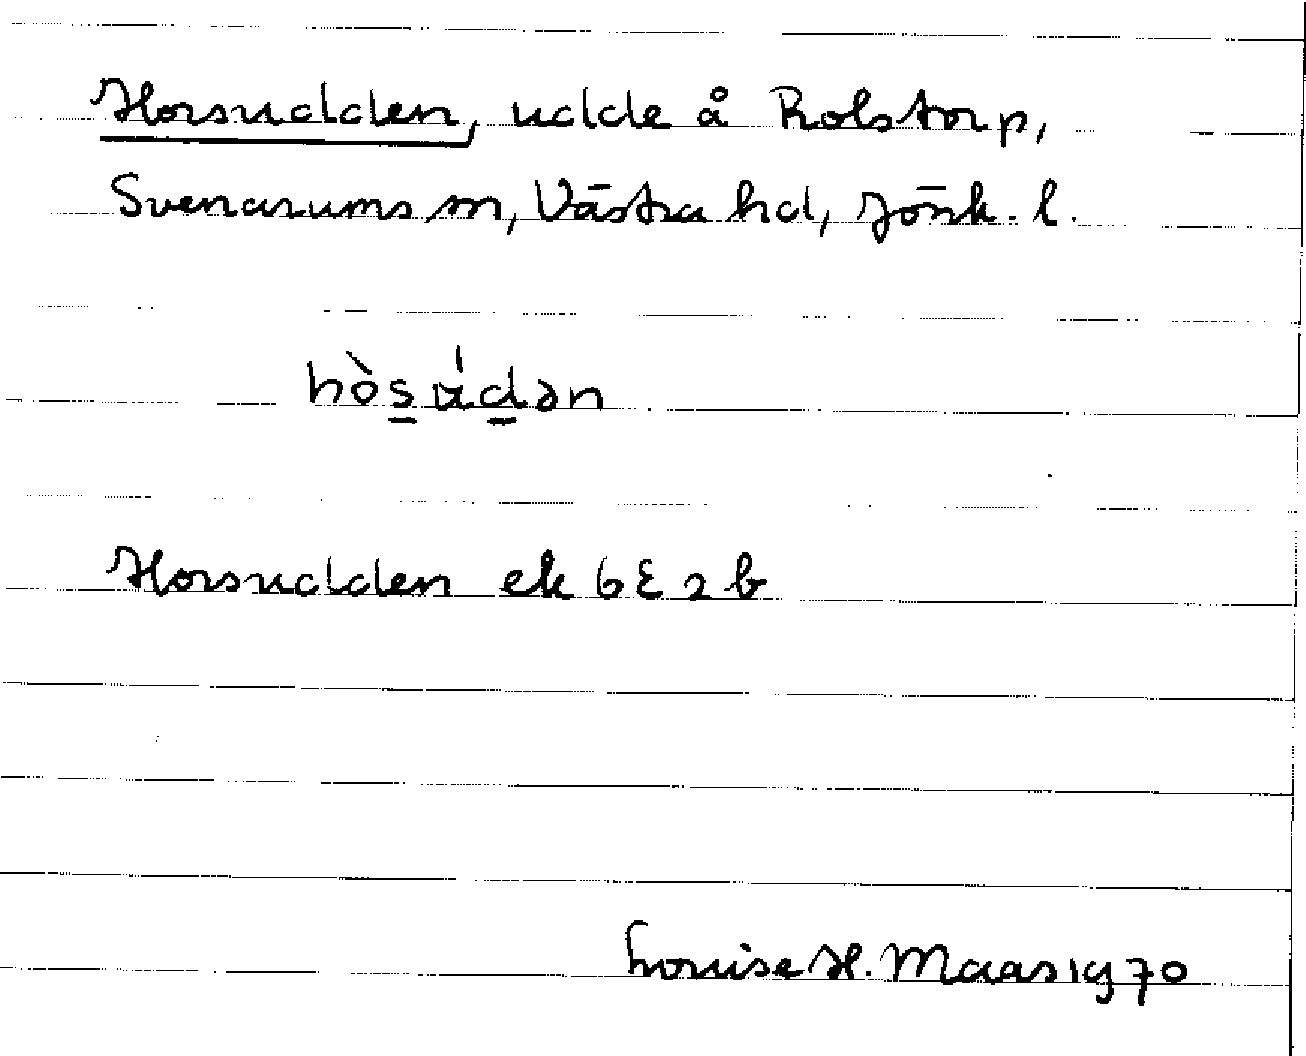 Horsudden, udde å Rolstorp,
Svenarums sn, Västra hd, Jönk. l.
hòsúdən
Horsudden ek 6E2b
Louise H. Maas 1970